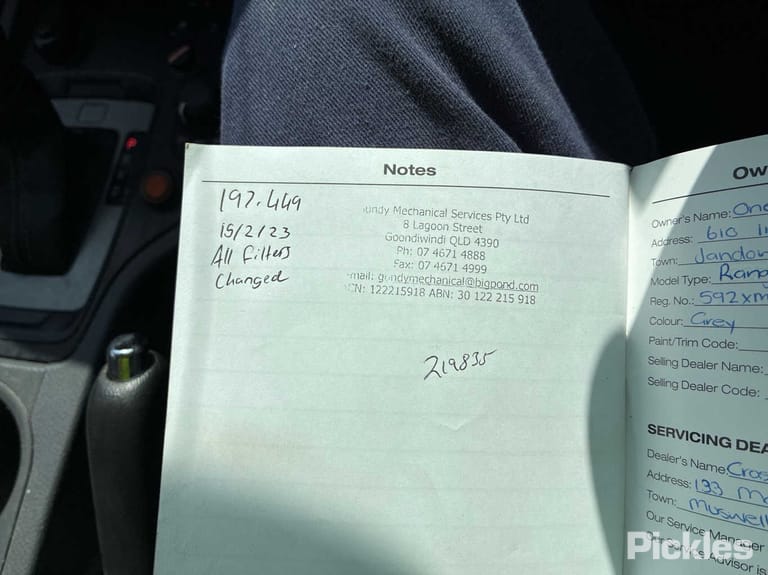 Notes
197.449
15/2/23
All Filters
Changed
undy Mechanical Services Pty Ltd
8 Lagoon Street
Goondiwindi QLD 4390
Ph: 07 4671 4888
Fax: 07 4671 4999
mail: gundymechanical@bigpond.com
CN: 122215918 ABN: 30 122 215 918
219835
Ow
Owner's Name: One
Address: 610
Town: Jandow
Model Type: Rang
Reg. No.: 592xm
Colour: Grey
Paint/Trim Code:
Selling Dealer Name:
Selling Dealer Code:
SERVICING DEA
Dealer's Name: Cros
Address: 133 Ma
Town: Muswell
Our Service Manager
Our Service Advisor is
Pickles